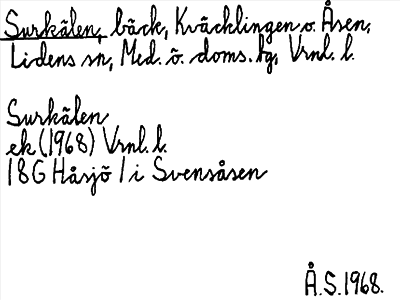 Surkälen, bäck, Kväcklingen o. Åsen,
Lidens sn, Med. ö. doms. hg, Vrnl. l.
Surkälen
ek (1968) Vrnl. l.
18G Håsjö / i Svensåsen
Å.S. 1968.